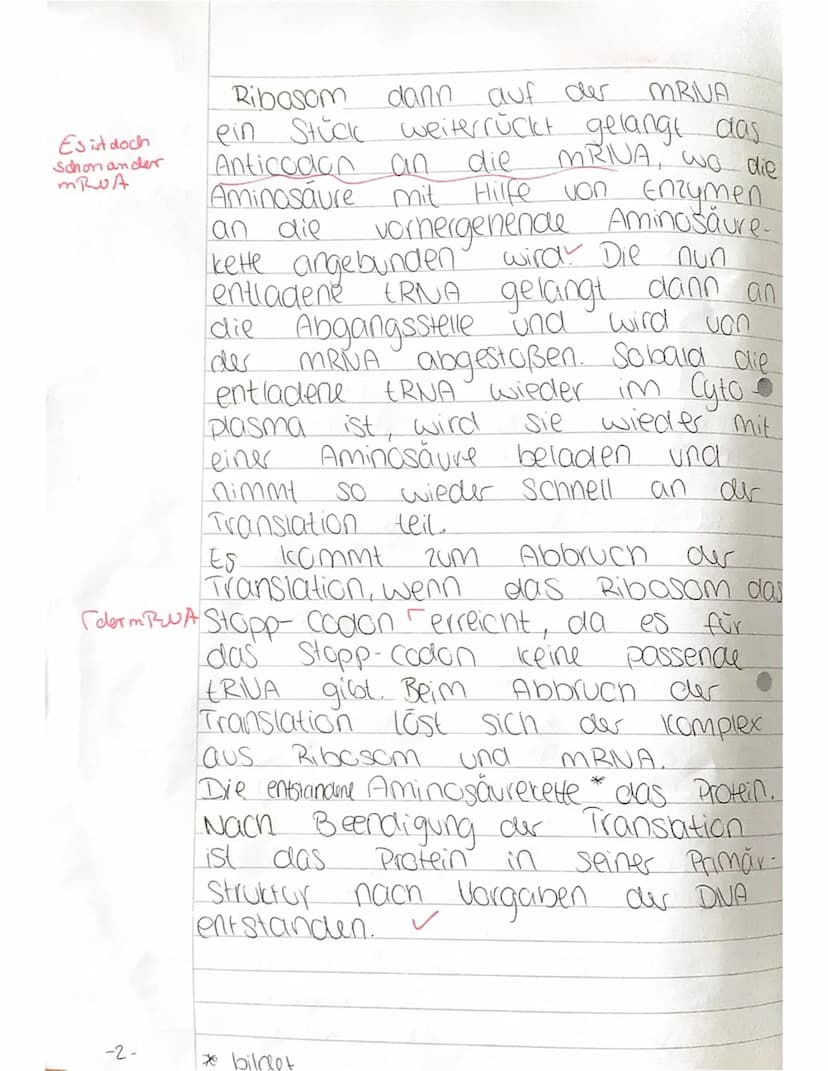 Ribosom dann auf der mRNA
ein Stück weiterrückt gelangt das
Es ist doch
schon an der
mRNA
Anticodon an die mRNA, wo die
Aminosäure mit Hilfe von Enzymen
an die vorhergehende Aminosäure-
kette angebunden wird. ✓ Die nun
entladene tRNA gelangt dann an
die Abgangsstelle und wird von
der mRNA abgestoßen. Sobald die
entladene tRNA wieder im Cyto-
plasma ist, wird sie wieder mit
einer Aminosäure beladen und
nimmt so wieder schnell an der
Translation teil.
Es kommt zum Abbruch der
Translation, wenn das Ribosom das
┌ der mRNA
Stopp-Codon ┌ erreicht, da es für
das Stopp-Codon keine passende
tRNA gibt. Beim Abbruch der
Translation löst sich der Komplex
aus Ribosom und mRNA.
Die entstandene Aminosäurekette * das Protein.
Nach Beendigung der Translation
ist das Protein in seiner Primär-
struktur nach Vorgaben der DNA
entstanden. ✓
-2-
* bildet